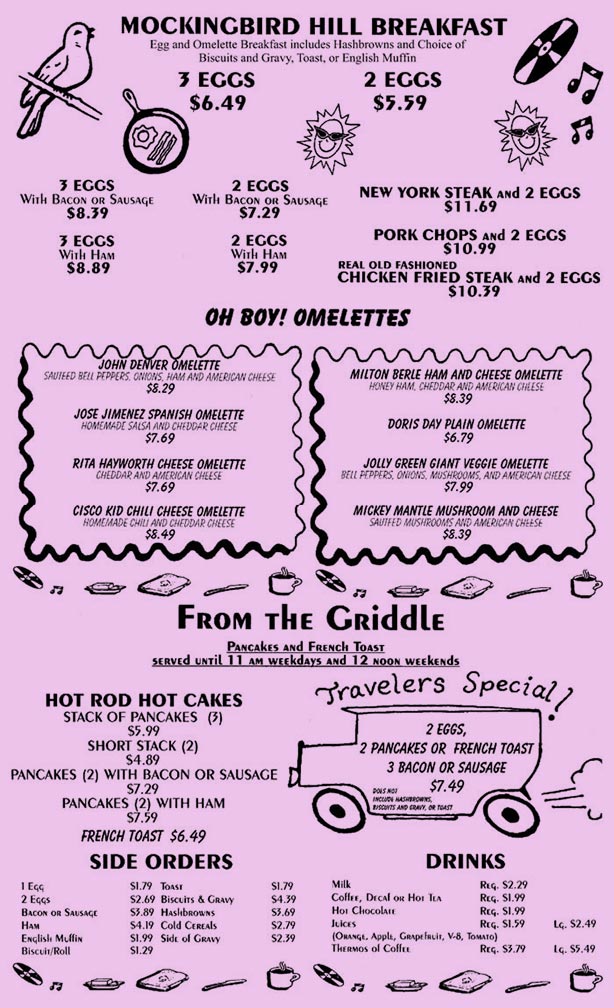 MOCKINGBIRD HILL BREAKFAST
Egg and Omelette Breakfast includes Hashbrowns and Choice of
Biscuits and Gravy, Toast, or English Muffin
3 EGGS
$6.49
2 EGGS
$5.59
3 EGGS
With Bacon or Sausage
$8.39
2 EGGS
With Bacon or Sausage
$7.29
3 EGGS
With Ham
$8.89
2 EGGS
With Ham
$7.99
NEW YORK STEAK and 2 EGGS
$11.69
PORK CHOPS and 2 EGGS
$10.99
REAL OLD FASHIONED
CHICKEN FRIED STEAK and 2 EGGS
$10.39
OH BOY! OMELETTES
JOHN DENVER OMELETTE
SAUTEED BELL PEPPERS, ONIONS, HAM AND AMERICAN CHEESE
$8.29
JOSE JIMENEZ SPANISH OMELETTE
HOMEMADE SALSA AND CHEDDAR CHEESE
$7.69
RITA HAYWORTH CHEESE OMELETTE
CHEDDAR AND AMERICAN CHEESE
$7.69
CISCO KID CHILI CHEESE OMELETTE
HOMEMADE CHILI AND CHEDDAR CHEESE
$8.49
MILTON BERLE HAM AND CHEESE OMELETTE
HONEY HAM, CHEDDAR AND AMERICAN CHEESE
$8.39
DORIS DAY PLAIN OMELETTE
$6.79
JOLLY GREEN GIANT VEGGIE OMELETTE
BELL PEPPERS, ONIONS, MUSHROOMS, AND AMERICAN CHEESE
$7.99
MICKEY MANTLE MUSHROOM AND CHEESE
SAUTEED MUSHROOMS AND AMERICAN CHEESE
$8.39
From the Griddle
Pancakes and French Toast
served until 11 am weekdays and 12 noon weekends
HOT ROD HOT CAKES
STACK OF PANCAKES (3)
$5.99
SHORT STACK (2)
$4.89
PANCAKES (2) WITH BACON OR SAUSAGE
$7.29
PANCAKES (2) WITH HAM
$7.59
FRENCH TOAST $6.49
Travelers Special!
2 EGGS,
2 PANCAKES OR FRENCH TOAST
3 BACON OR SAUSAGE
$7.49
DOES NOT
INCLUDE HASHBROWNS,
BISCUITS AND GRAVY, OR TOAST
SIDE ORDERS
1 Egg $1.79
2 Eggs $2.69
Bacon or Sausage $3.89
Ham $4.19
English Muffin $1.99
Biscuit/Roll $1.29
Toast $1.79
Biscuits & Gravy $4.39
Hashbrowns $3.69
Cold Cereals $2.79
Side of Gravy $2.39
DRINKS
Milk Reg. $2.29
Coffee, Decaf or Hot Tea Reg. $1.99
Hot Chocolate Reg. $1.99
Juices Reg. $1.59 Lg. $2.49
(Orange, Apple, Grapefruit, V-8, Tomato)
Thermos of Coffee Reg. $3.79 Lg. $5.49